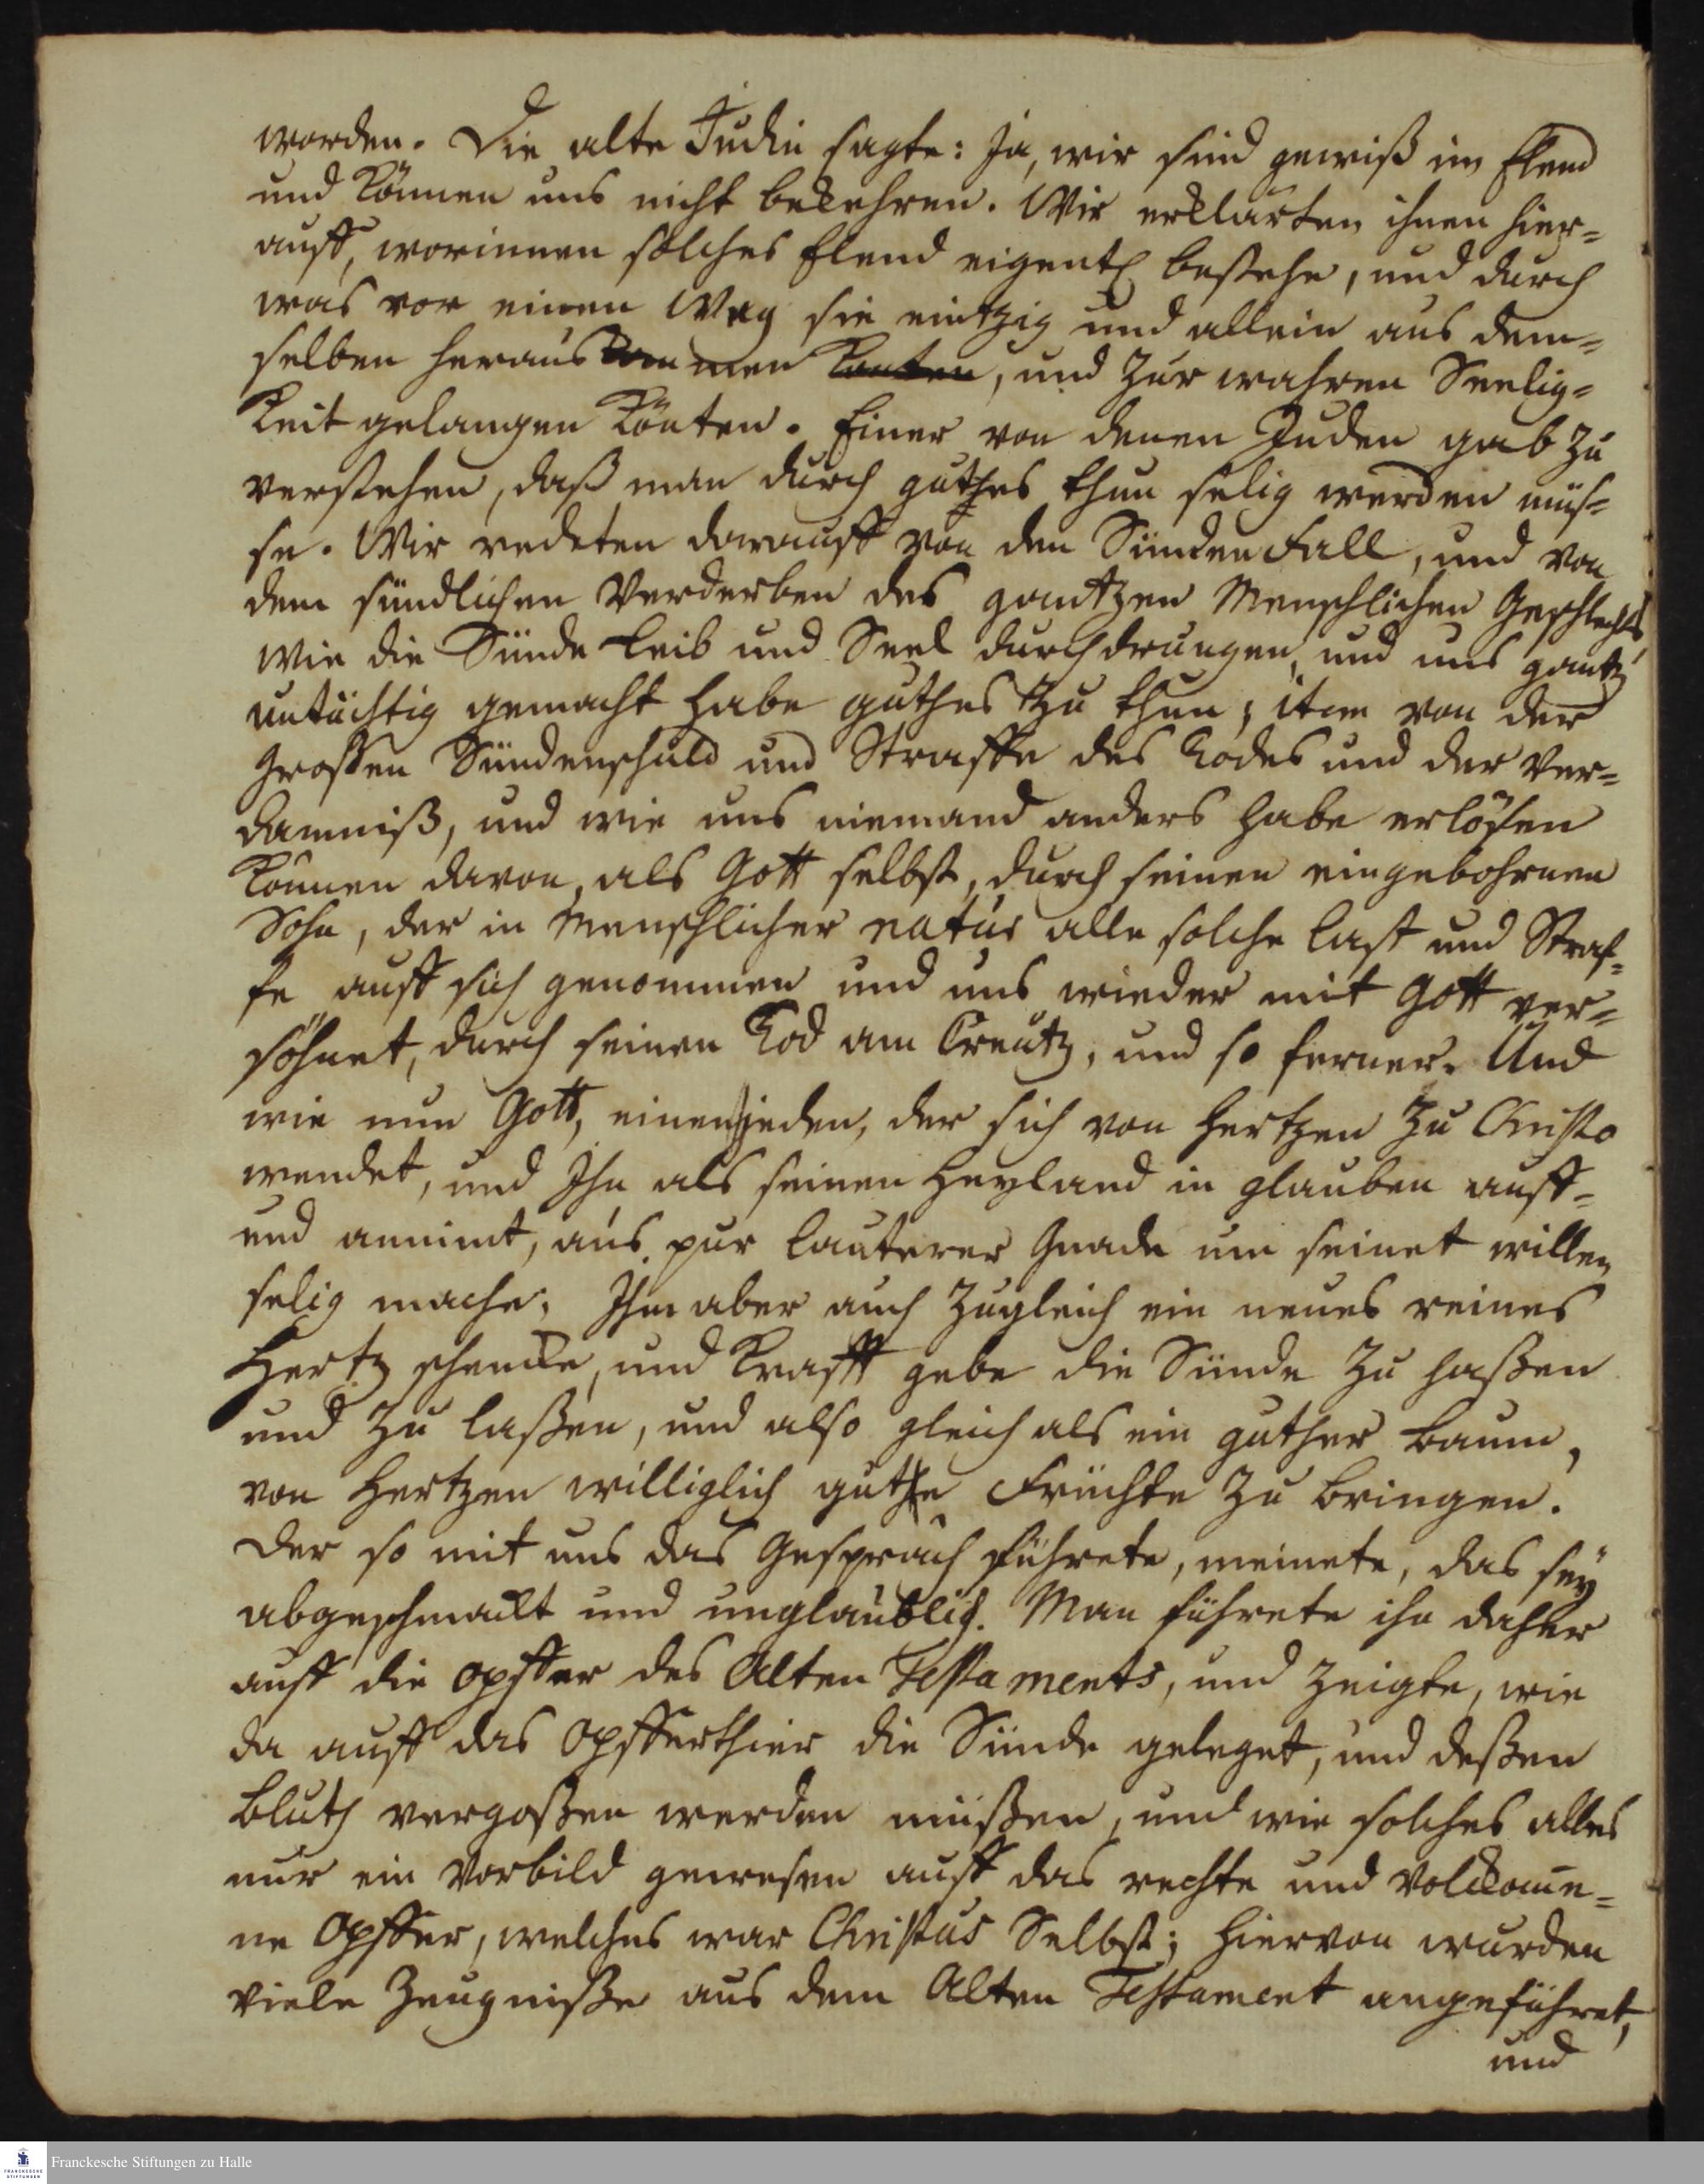 worden. Die alte Judin sagte: Ja, wir sind gewiß im Elend
und können uns nicht bekehren. Wir erklärten ihnen hier=
auff, worinnen solches Elend eigentl. bestehe, und durch
was vor einen Weg sie eintzig und allein aus dem=
selben heraus kommen konten, und zur wahren Seelig=
keit gelangen könten. Einer von denen Juden gab zu
verstehen, daß man durch guthes thun selig werden müs=
se. Wir redeten darauff von den Sünden Fall, und von
dem sündlichen Verderben des gantzen Menschlichen Geschlechts,
wie die Sünde Leib und Seel durchdrungen, und uns gantz
untüchtig gemacht habe guthes zu thun; item von der
grossen Sündenschuld und Straffe des Todes und der Ver=
damniß, und wie uns niemand anders habe erlösen
können davon, als Gott selbst, durch seinen eingebohrnen
Sohn, der in Menschlicher natur alle solche Last und Straf=
fe auff sich genommen und uns wieder mit Gott ver=
söhnet, durch seinen Tod am Creutz, und so ferner. Und
wie nun Gott, einen jeden, der sich von Hertzen zu Christo
wendet, und Ihn als seinen Heyland in glauben auff=
und annimt, aus pur lauterer Gnade um seinet willen
selig mache; Ihm aber auch zugleich ein neues reines
Hertz schencke, und Krafft gebe die Sünde zu haßen
und zu laßen, und also gleich als ein guther Baum,
von Hertzen williglich guthe Früchte zu bringen.
Der so mit uns das Gespräch führete, meinete, das seÿ
abgeschmackt und unglaublich. Man führete ihn daher
auff die opffer des Alten Testaments, und zeigte, wie
da auff das Opfferthier die Sünde geleget, und deßen
Bluth vergoßen werden müßen, und wie solches alles
nur ein Vorbild gewesen auff das rechte und Volckom̄e=
ne Opffer, welches war Christus Selbst; Hiervon wurden
viele Zeugniße aus dem Alten Testament angeführet,
und
Franckesche Stiftungen zu Halle